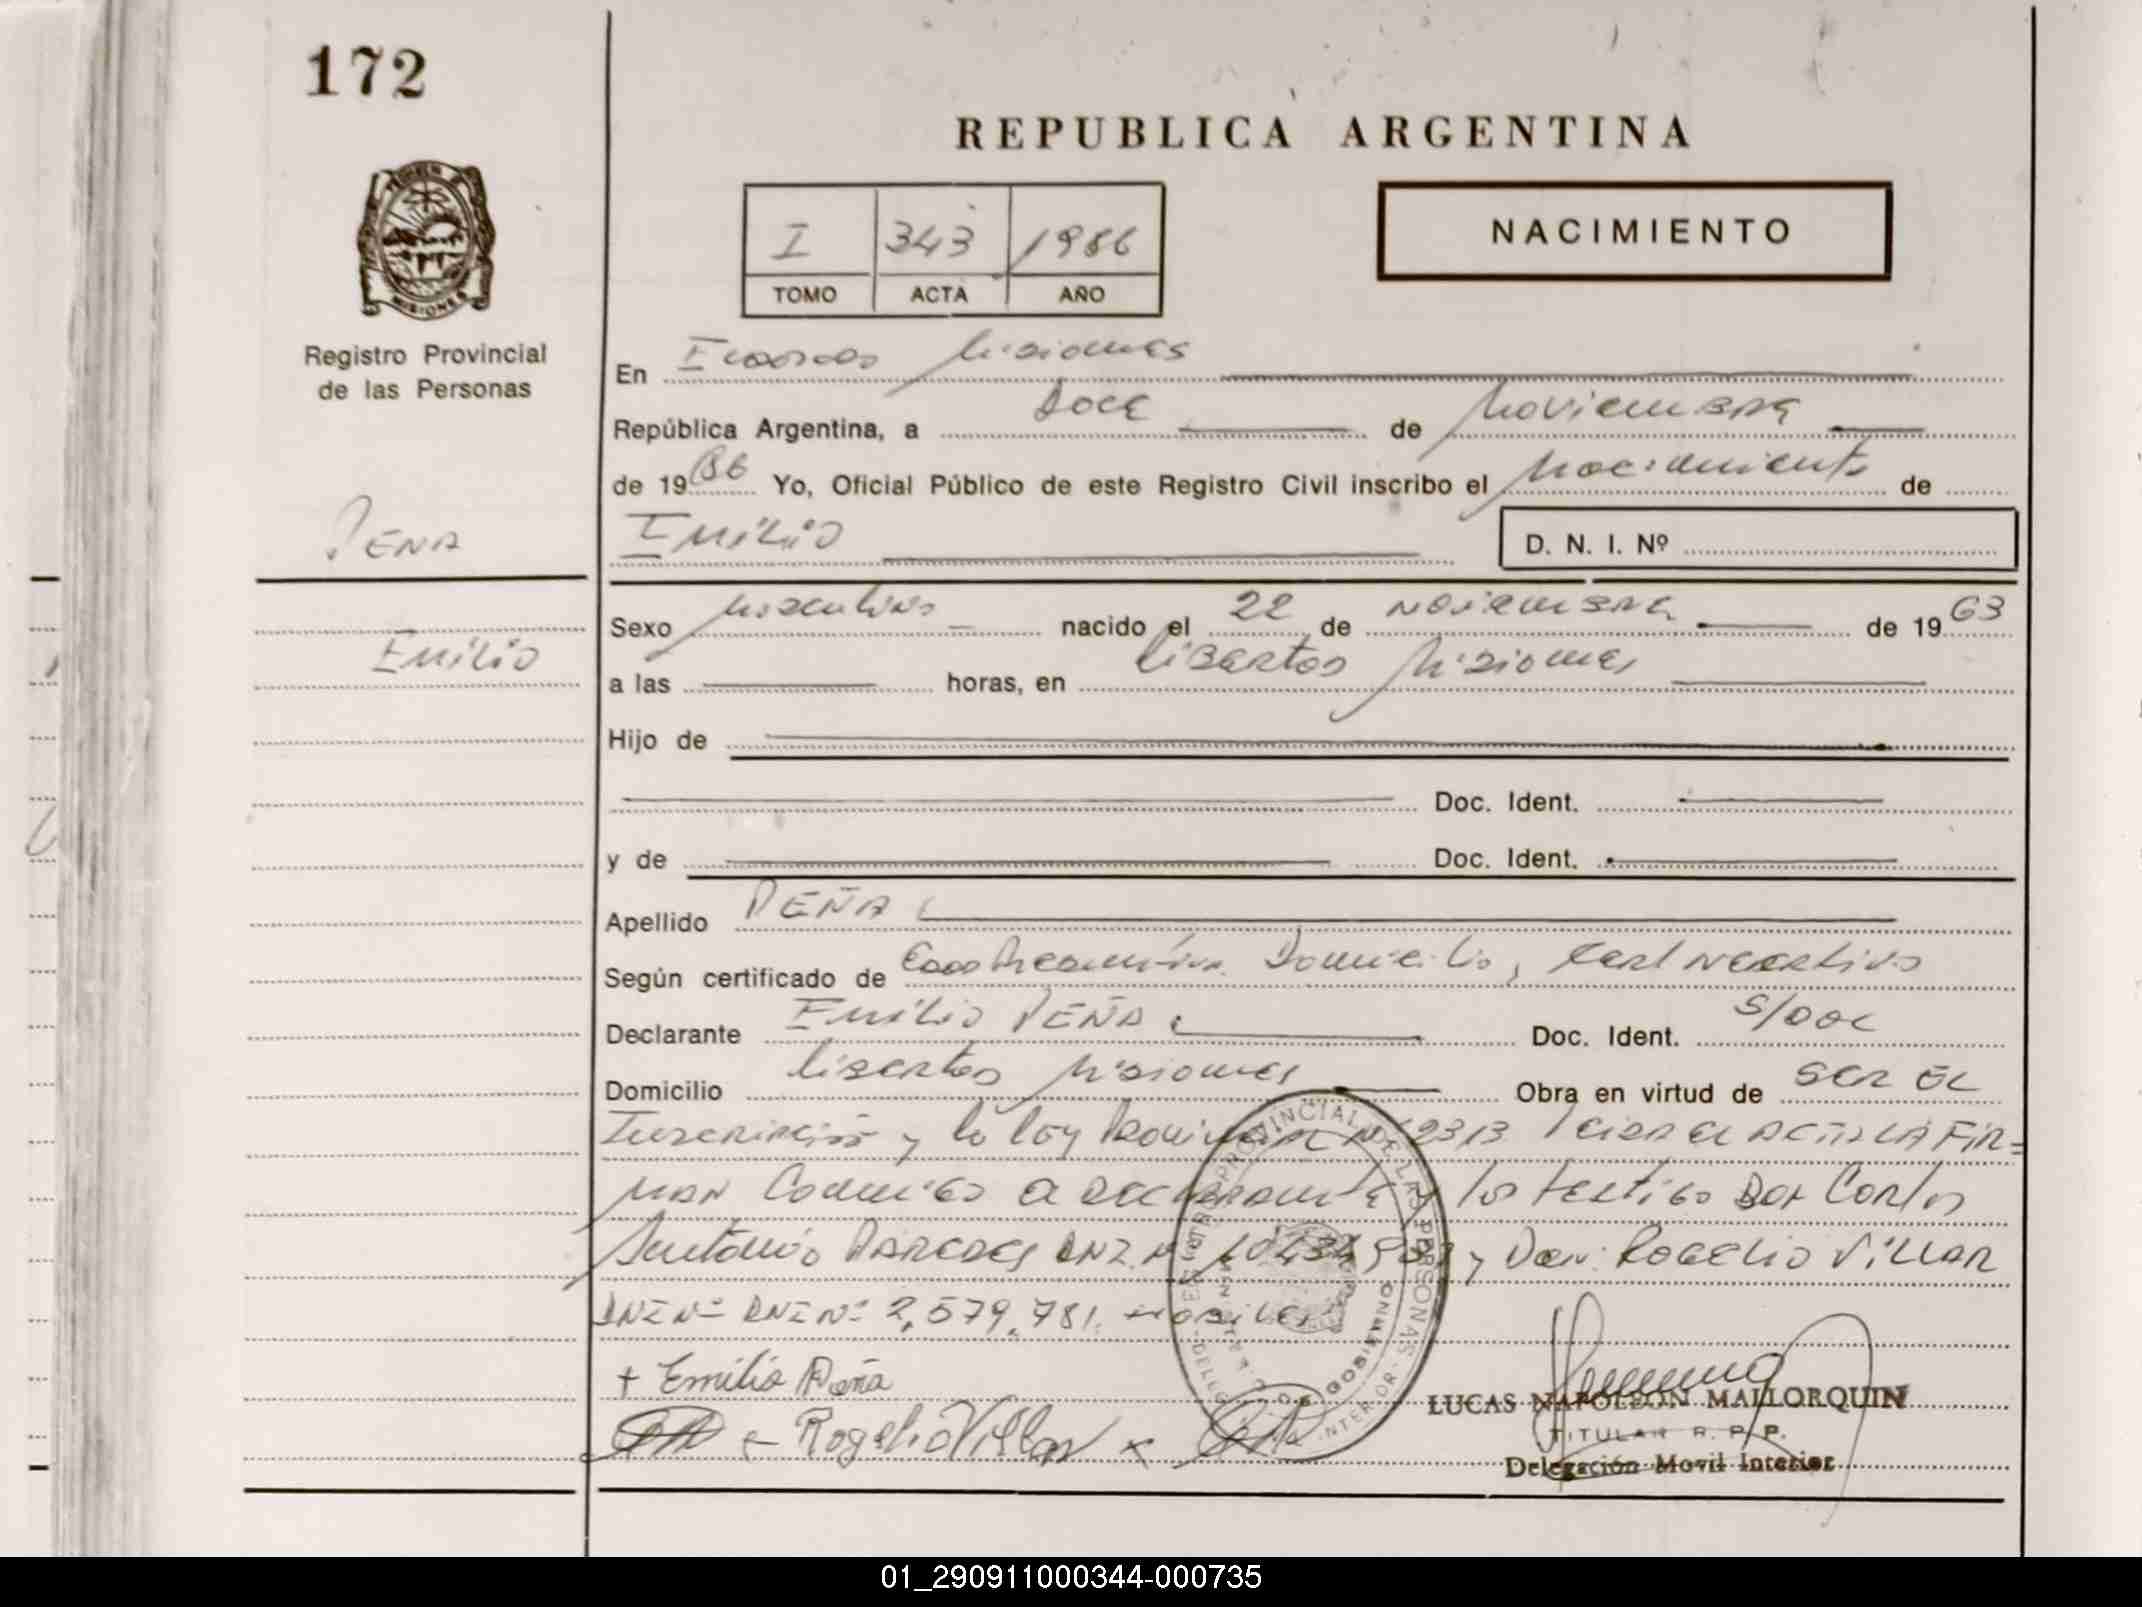 172
REPUBLICA ARGENTINA
I 343 1986
TOMO ACTA AÑO
NACIMIENTO
MISIONES
Registro Provincial
de las Personas
En Misiones
República Argentina, a Doce de Noviembre
de 1986 Yo, Oficial Público de este Registro Civil inscribo el Nacimiento de
PEÑA
Emilio
D. N. I. Nº
Emilio
Sexo Masculino nacido el 22 de Noviembre de 1963
a las horas, en Libertad Misiones
Hijo de
Doc. Ident.
y de Doc. Ident.
Apellido PEÑA
Según certificado de Domicilio, Cert Negativo
Declarante Emilio PEÑA Doc. Ident. S/DOC
Domicilio Libertad Misiones Obra en virtud de SER EL
Inscripción y la ley Provincial Nº 2313 Leida el ACTA LA FIR=
MAN Conmigo el declarante y los testigo Don Carlos
Antonio PAREDES DNI. Nº y Don: ROGELIO VILLAR
DNI Nº DNI Nº 2,579,781.
+ Emilio Peña
Rogelio Villar x
REGISTRO PROVINCIAL DE LAS PERSONAS
DE GOBIERNO
INTERIOR
LUCAS NAPOLEON MALLORQUIN
TITULAR R. P. P.
Delegación Movil Interior
01_290911000344-000735